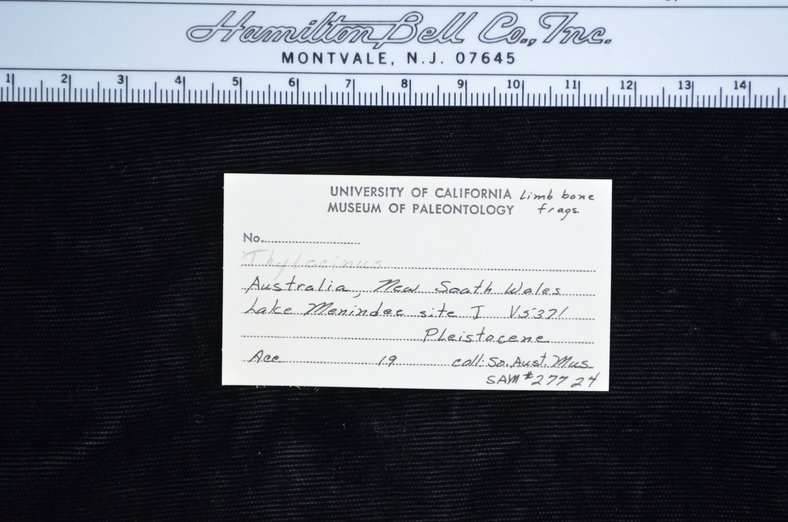 Hamilton Bell Co., Inc.
MONTVALE, N.J. 07645
1 2 3 4 5 6 7 8 9 10 11 12 13 14
UNIVERSITY OF CALIFORNIA Limb bone
MUSEUM OF PALEONTOLOGY frags
No.
Thylacinus
Australia, New South Wales
Lake Menindee site I V5371
Pleistocene
Acc 19 coll: So. Aust. Mus
SAM #27724